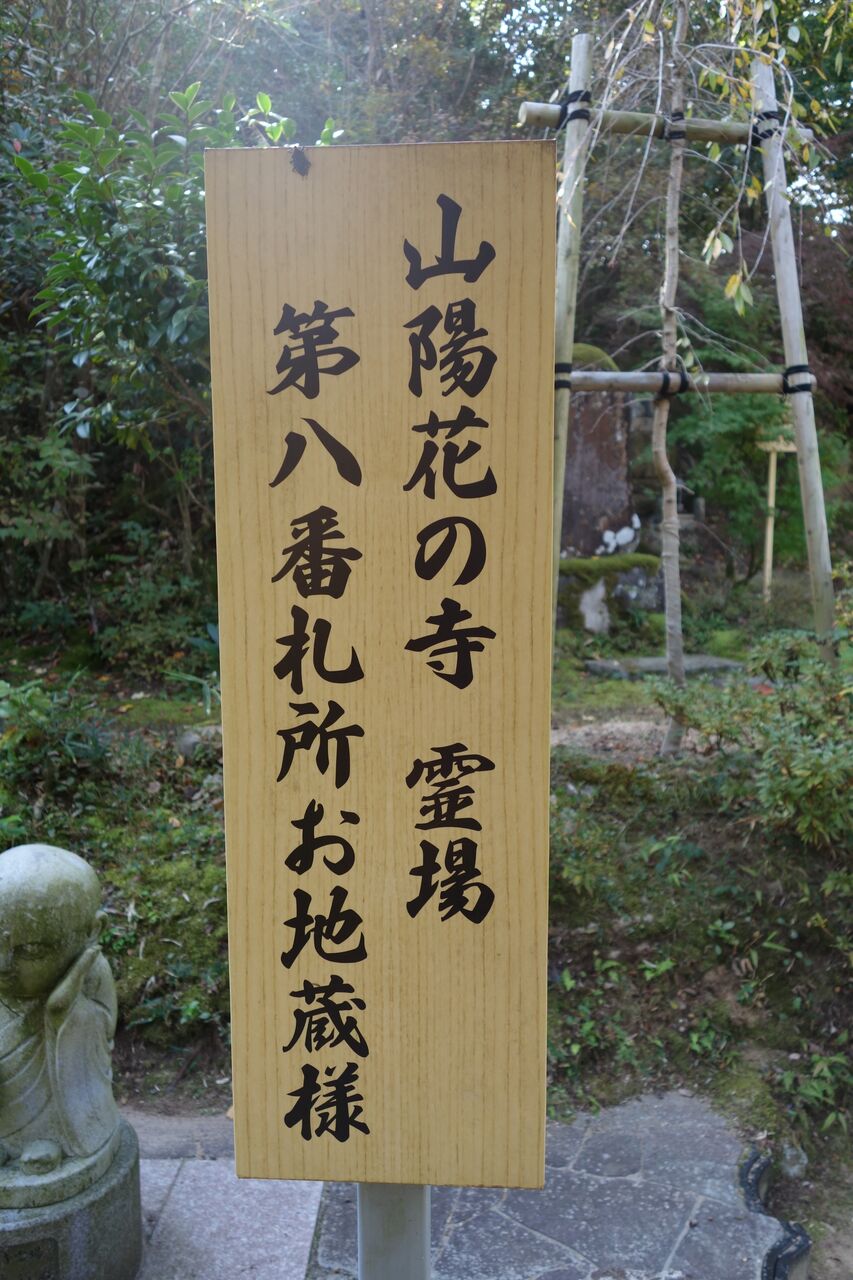 山陽花の寺　霊場
第八番札所お地蔵様